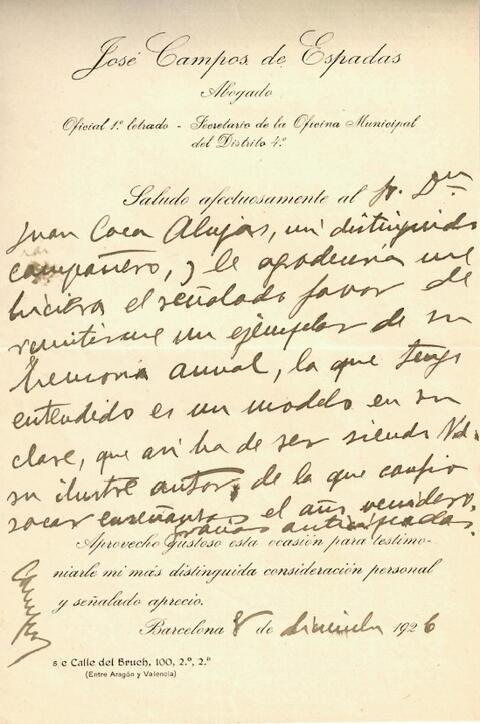 José Campos de Espadas
Abogado
Oficial 1º letrado - Secretario de la Oficina Municipal
del Distrito 4º
Saludo afectuosamente al Sr. Dn
Juan Coca Alujas, mi distinguido
compañero, y le agradecería me
hiciera el señalado favor de
remitirme un ejemplar de su
Memoria anual, la que tengo
entendido es un modelo en su
clase, que así ha de ser siendo Vd.
su ilustre autor, de la que confío
sacar enseñanzas el año venidero,
gracias anticipadas.
Aprovecho gustoso esta ocasión para testimo-
niarle mi más distinguida consideración personal
y señalado aprecio.
Campos
Barcelona 8 de diciembre 1926
s c Calle del Bruch, 100, 2.º, 2.ª
(Entre Aragón y Valencia)